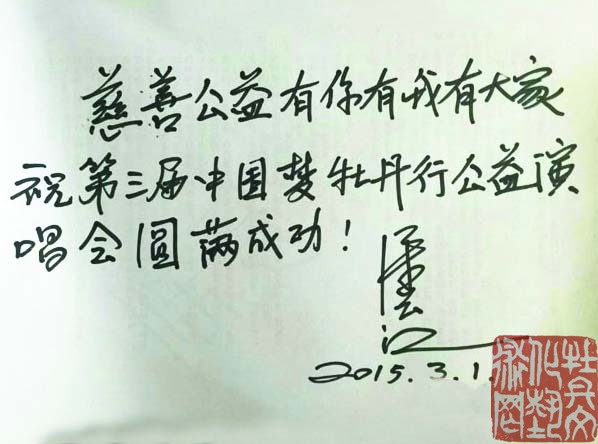 慈善公益有你有我有大家
祝第三届中国梦牡丹行公益演
唱会圆满成功！
2015.3.1.
牡丹文
化艺
术网